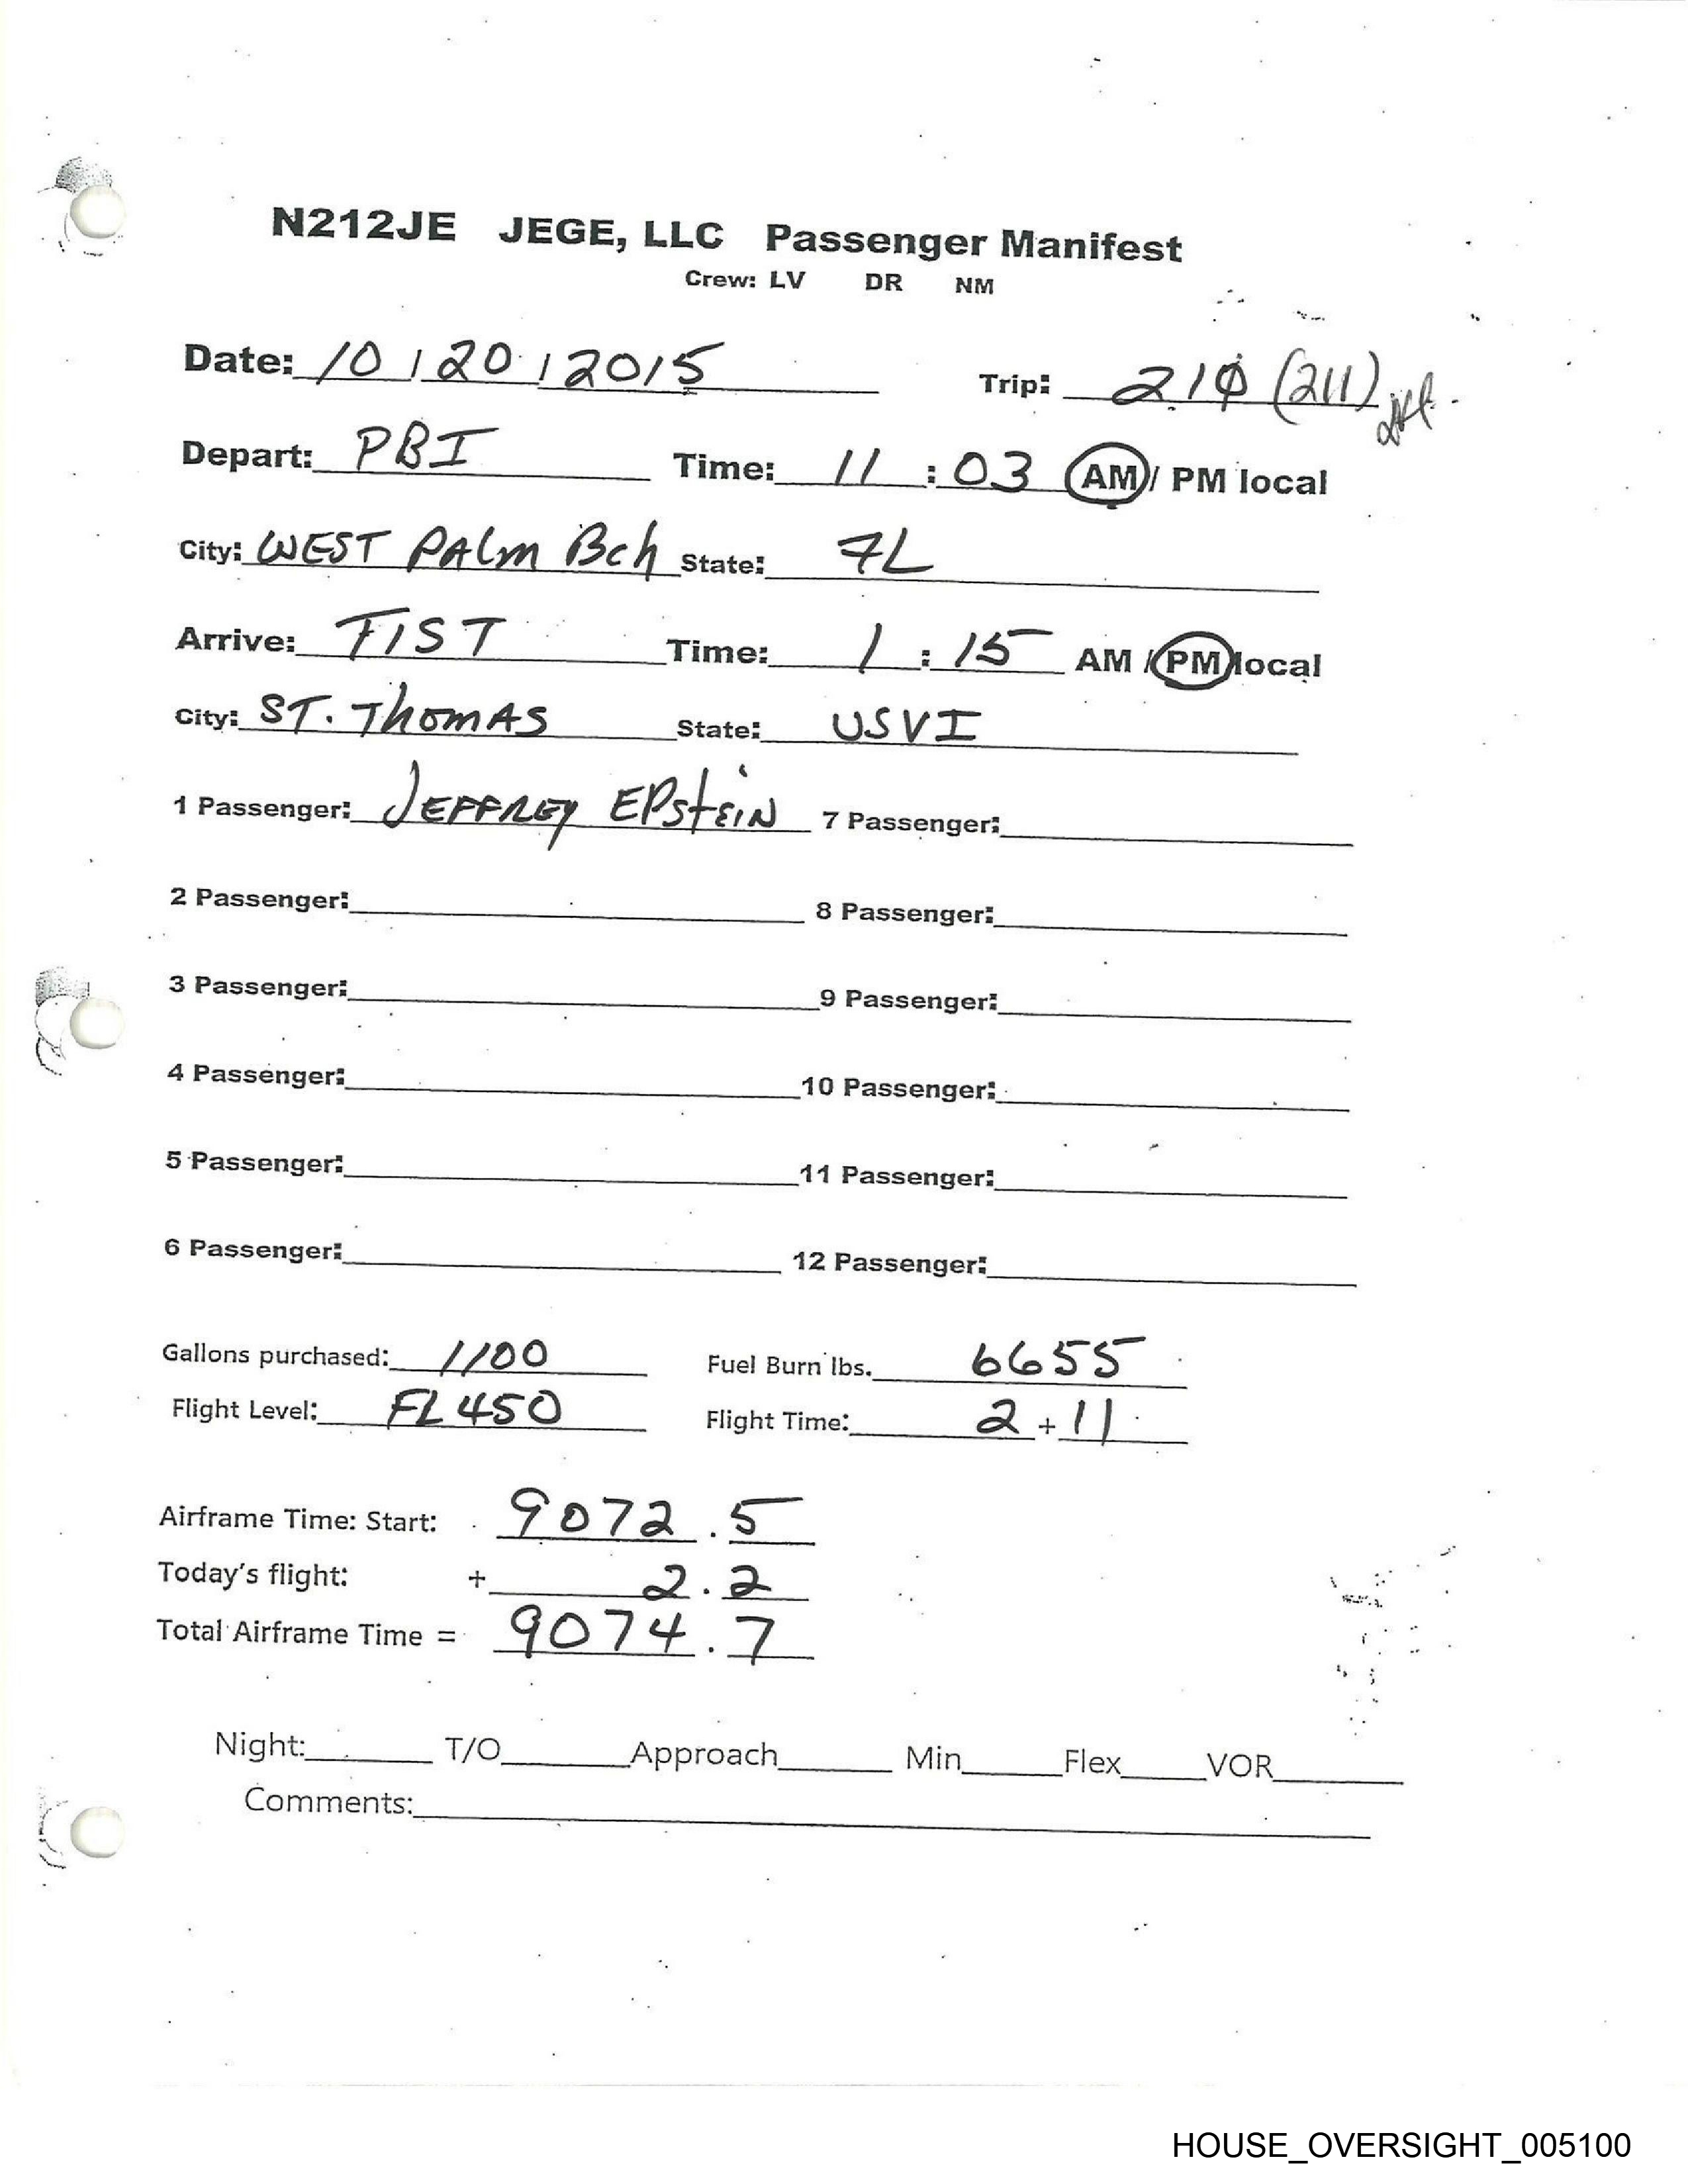 N212JE JEGE, LLC Passenger Manifest
Crew: LV DR NM
Date: 10 / 20 / 2015 Trip: 210 (211)
Depart: PBI Time: 11 : 03 AM / PM local
City: WEST PALM Bch State: FL
Arrive: TIST Time: 1 : 15 AM / PM local
City: ST. THOMAS State: USVI
1 Passenger: JEFFREY EPSTEIN 7 Passenger:
2 Passenger: 8 Passenger:
3 Passenger: 9 Passenger:
4 Passenger: 10 Passenger:
5 Passenger: 11 Passenger:
6 Passenger: 12 Passenger:
Gallons purchased: 1100 Fuel Burn lbs. 6655
Flight Level: FL450 Flight Time: 2 + 11
Airframe Time: Start: 9072 . 5
Today's flight: + 2 . 2
Total Airframe Time = 9074 . 7
Night: T/O Approach Min Flex VOR
Comments:
HOUSE_OVERSIGHT_005100